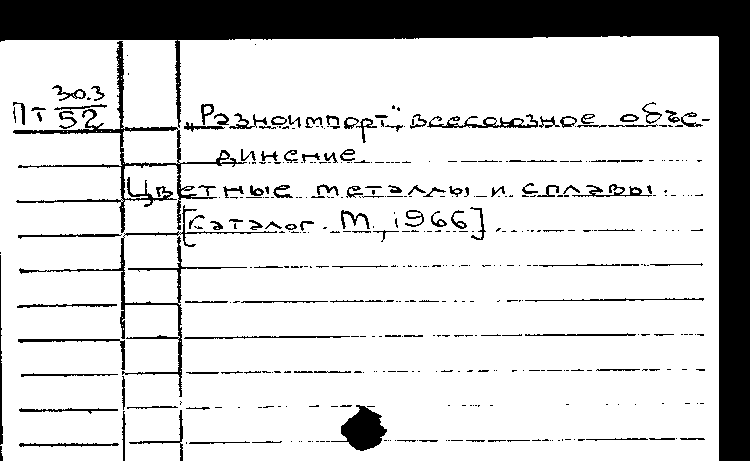 Пт 30.3
52
„Разноимпорт", всесоюзное объе-
динение.
Цветные металлы и сплавы.
[Каталог. М, 1966].